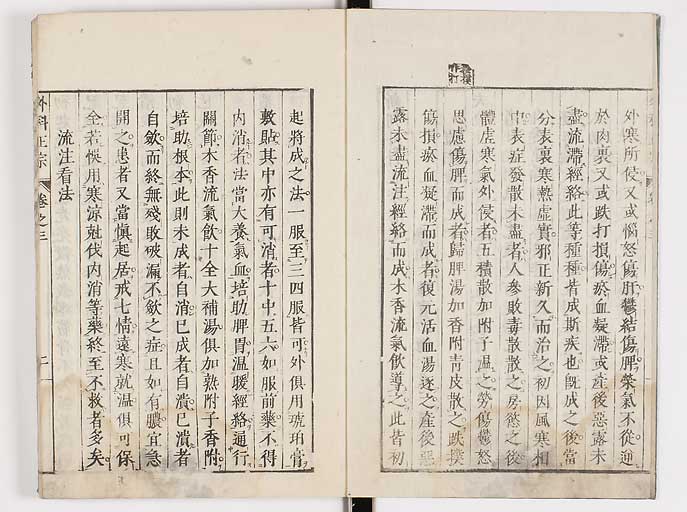 外寒所侵又或惱怒傷肝鬱結傷脾榮氣不從逆
於肉裏又或跌打損傷瘀血凝滯或產後惡露未
盡流滯經絡此等種種皆成斯疾也既成之後當
分表裏寒熱虛實邪正新久而治之初因風寒相
中表症發散未盡者人參敗毒散散之房慾之後
體虛寒氣外侵者五積散加附子溫之勞傷鬱怒
思慮傷脾而成者歸脾湯加香附青皮散之跌撲
傷損瘀血凝滯而成者復元活血湯逐之產後惡
露未盡流注經絡而成木香流氣飲導之此皆初
起將成之法一服至三四服皆可外俱用琥珀膏
敷貼其中亦有可消者十中五六如服前藥不得
內消者法當大養氣血培助脾胃溫暖經絡通行
關節木香流氣飲十全大補湯俱加熟附子香附
培助根本此則未成者自消已成者自潰已潰者
自斂而終無殘敗破漏不斂之症且如有膿宜急
開之患者又當慎起居戒七情遠寒就溫俱可保
全若悞用寒涼尅伐內消等藥終至不救者多矣
流注看法
外科正宗 卷之三